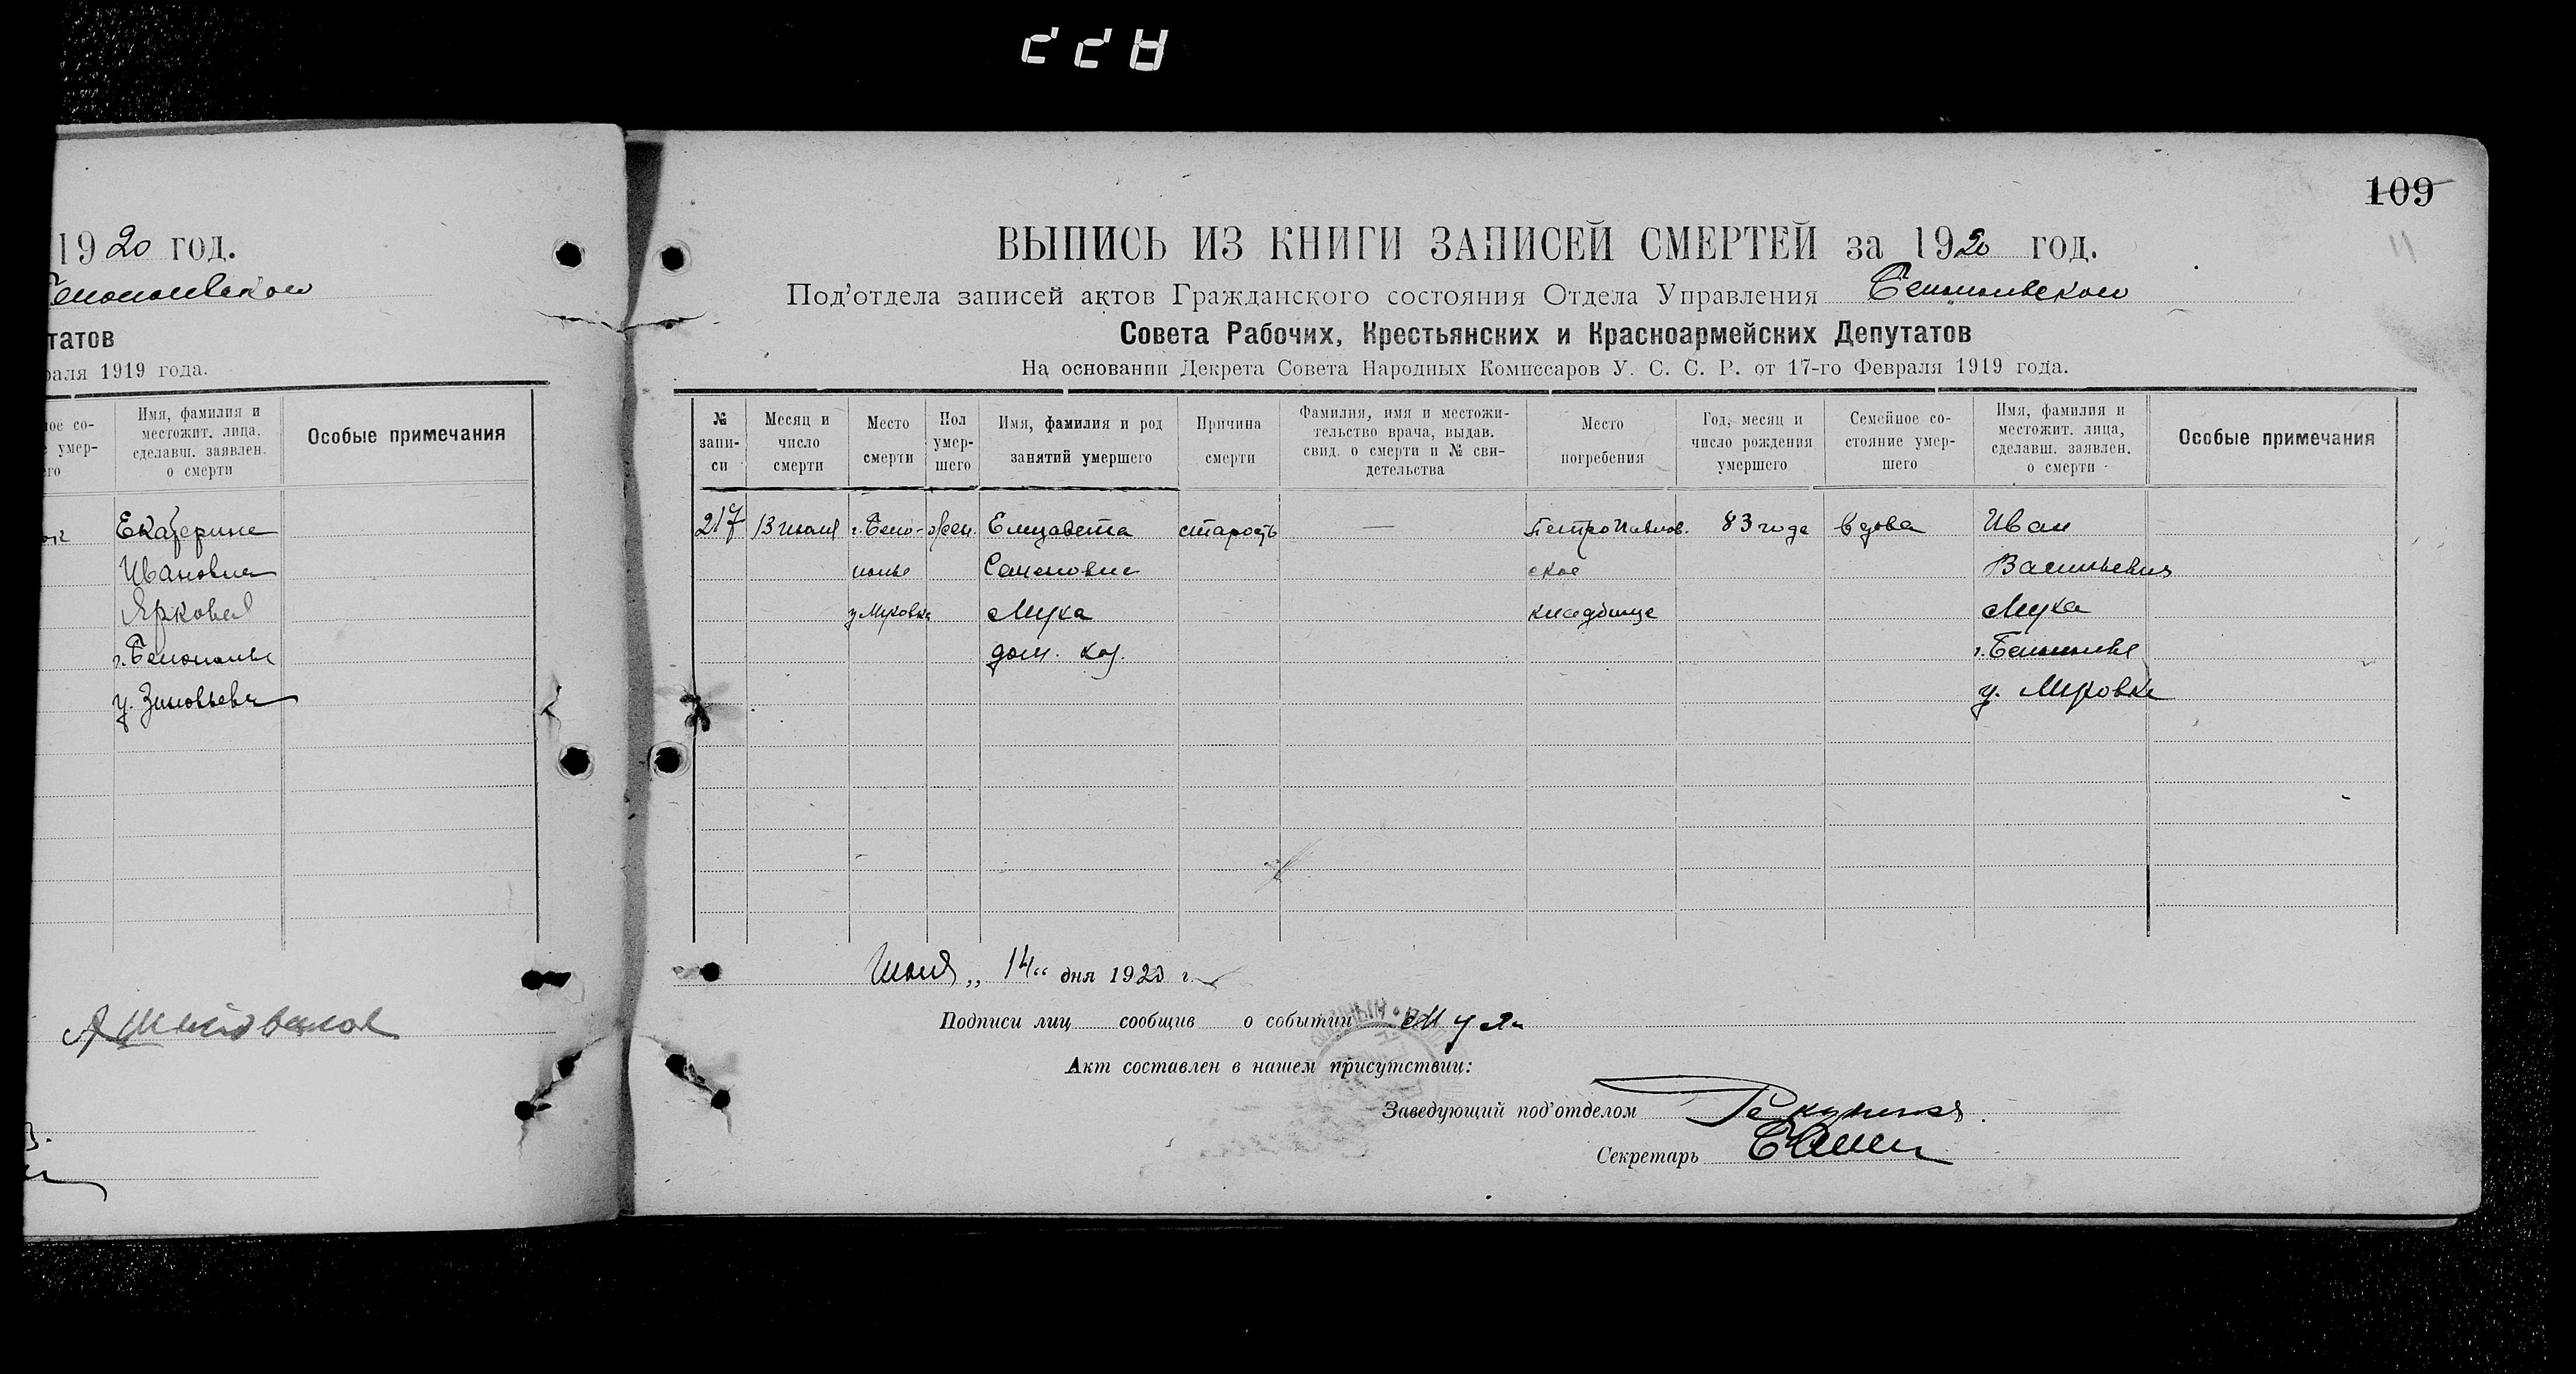 109
1920 год.
Белопольского
татов
раля 1919 года.
ое со-
умер-
го
Имя, фамилия и
местожит. лица,
сделавш. заявлен.
о смерти
Особые примечания
Екатерина
Ивановна
Яркова
г. Белополье
у. Зиновьева
ВЫПИСЬ ИЗ КНИГИ ЗАПИСЕЙ СМЕРТЕЙ за 1920 год.
Под'отдела записей актов Гражданского состояния Отдела Управления Белопольского
Совета Рабочих, Крестьянских и Красноармейских Депутатов
На основании Декрета Совета Народных Комиссаров У. С. С. Р. от 17-го Февраля 1919 года.
№
запи-
си
Месяц и
число
смерти
Место
смерти
Пол
умер-
шего
Имя, фамилия и род
занятий умершего
Причина
смерти
Фамилия, имя и местожи-
тельство врача, выдав.
свид. о смерти и № сви-
детельства
Место
погребения
Год, месяц и
число рождения
умершего
Семейное со-
стояние умер-
шего
Имя, фамилия и
местожит. лица,
сделавш. заявлен.
о смерти
Особые примечания
217 13 июля г. Бело- жен. Елизавета старость — Петропавлов. 83 года вдова Иван
полье Семеновна ское Васильевич
Мука кладбище Мука
дом. хоз. г. Белополье
Июля „ 14 “ дня 1920 г.
Подписи лиц сообщив о событии Мука
Акт составлен в нашем присутствии:
Заведующий под'отделом
Секретарь